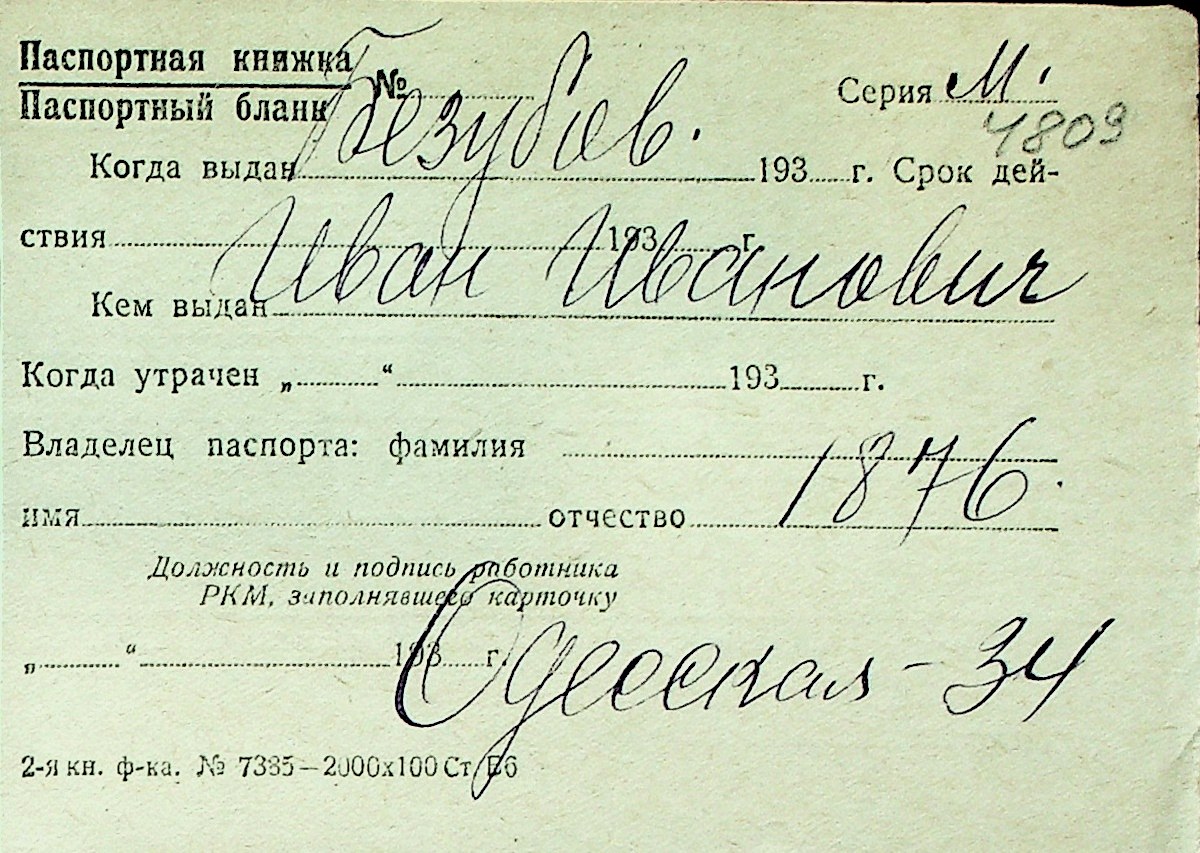 Паспортная книжка
Паспортный бланк № Безубов. Серия М.
4809
Когда выдан 193 г. Срок дей-
ствия 193 г.
Иван Иванович
Кем выдан
Когда утрачен „ “ 193 г.
Владелец паспорта: фамилия
1876.
имя отчество
Должность и подпись работника
РКМ, заполнявшего карточку
Одесская - 34
„ “ 193 г.
2-я кн. ф-ка. № 7385—2000х100 Ст. Б6